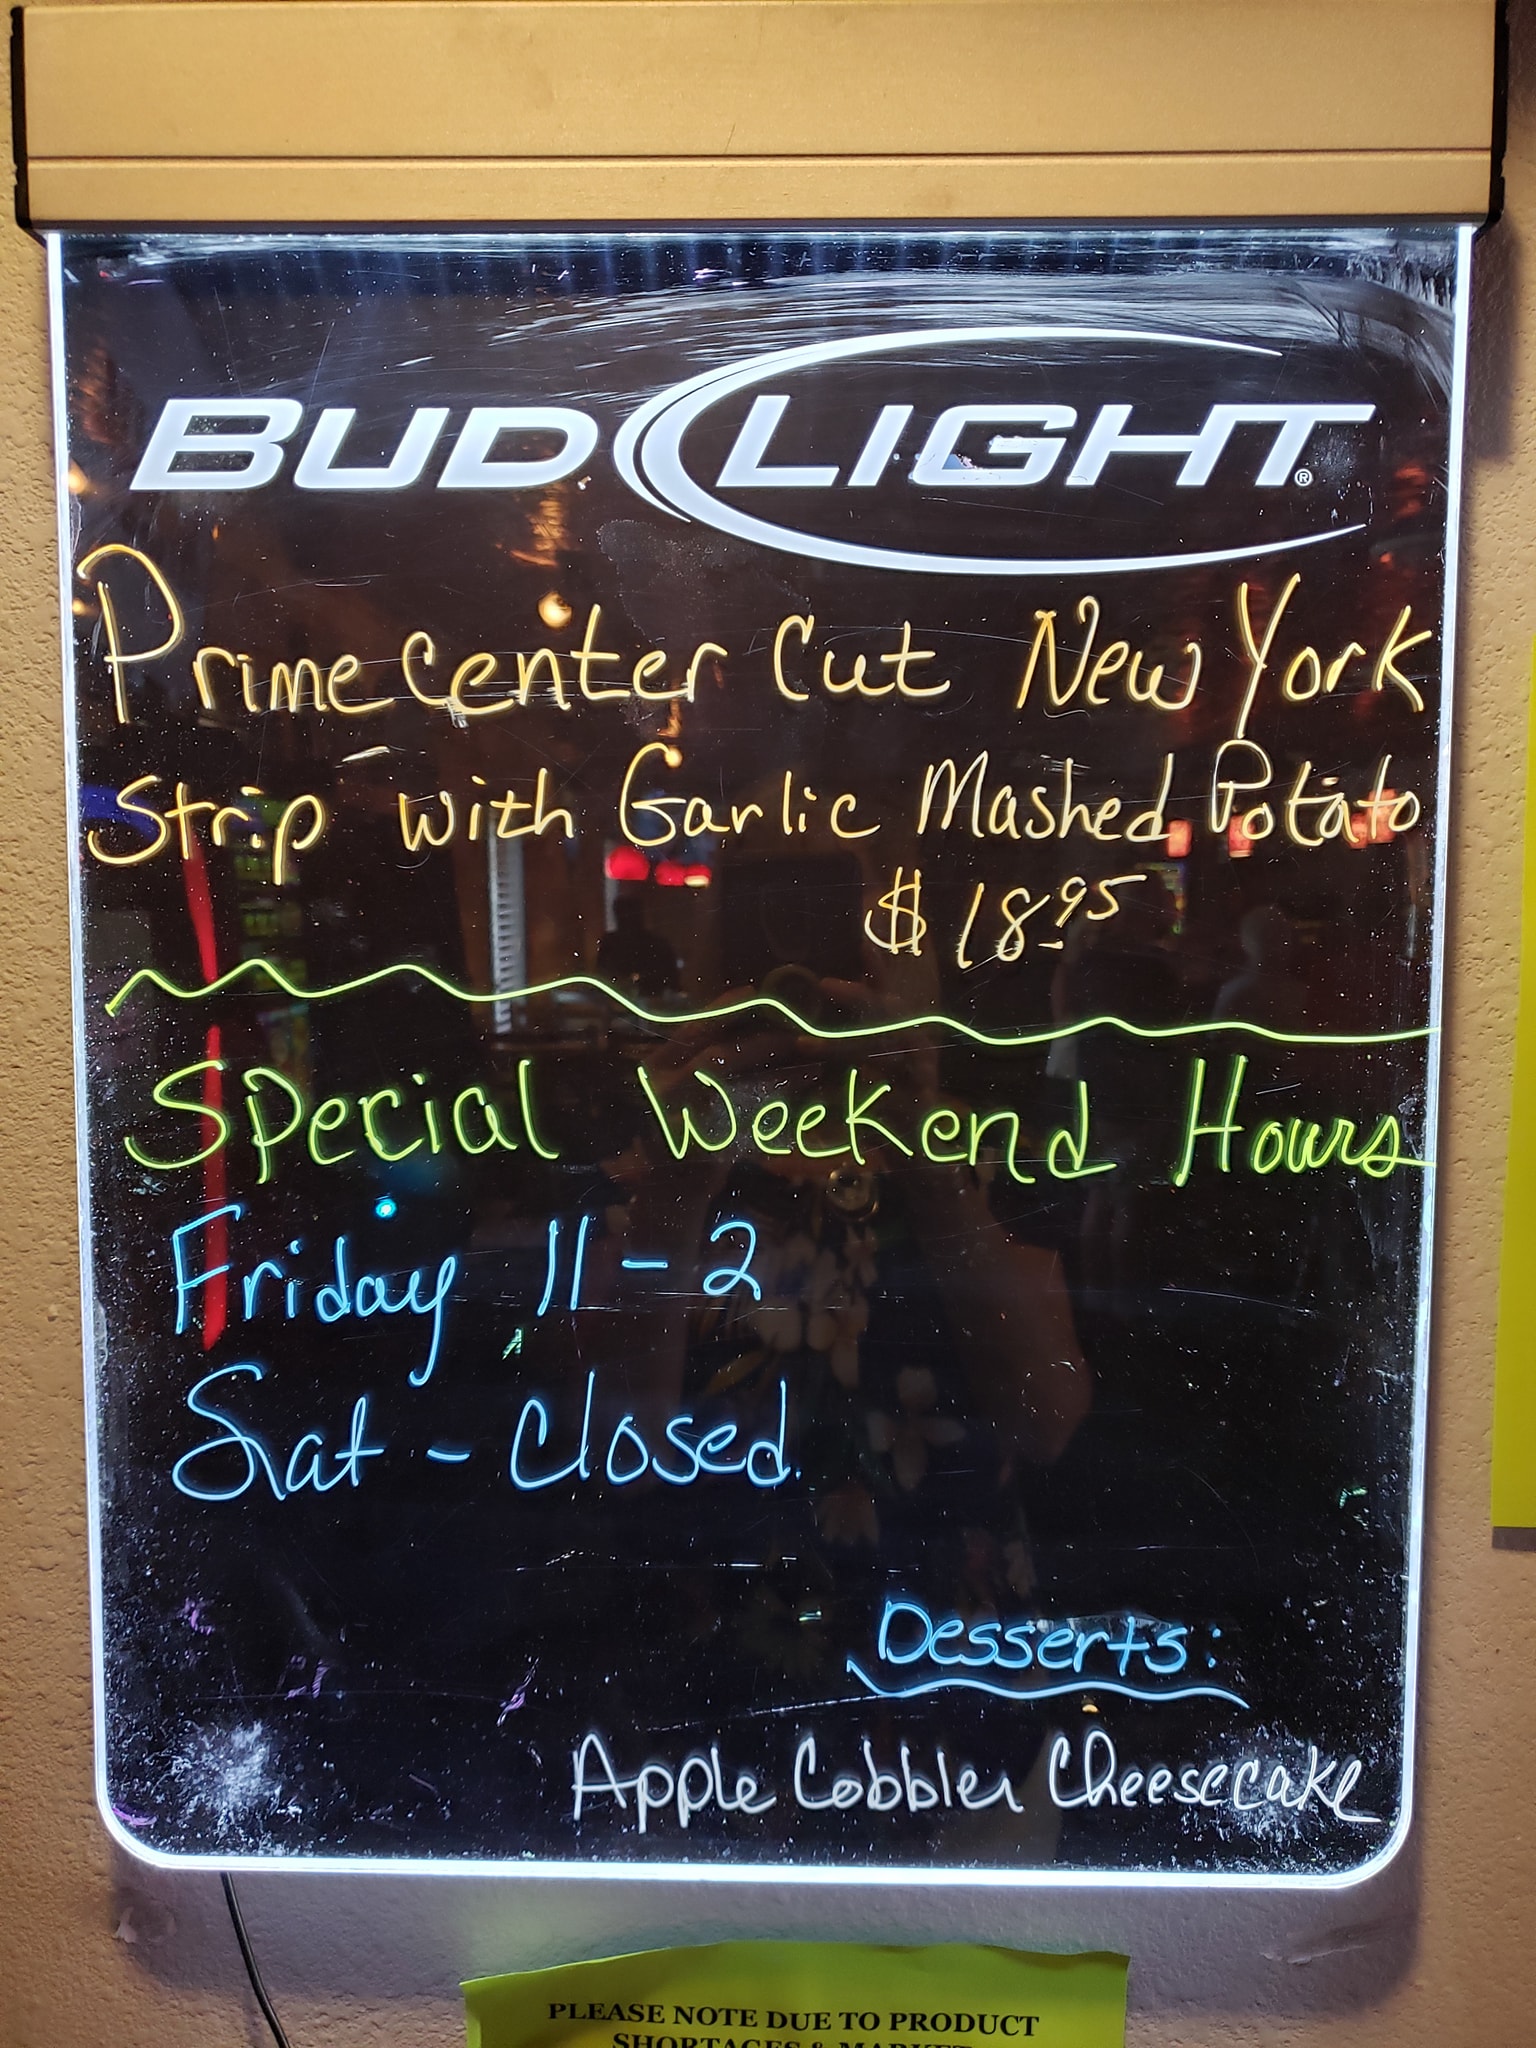 BUD LIGHT®
Prime Center Cut New York
Strip with Garlic Mashed Potato
$18.95
Special Weekend Hours
Friday 11-2
Sat - Closed
Desserts:
Apple Cobbler Cheesecake
PLEASE NOTE DUE TO PRODUCT
SHORTAGES & MARKET